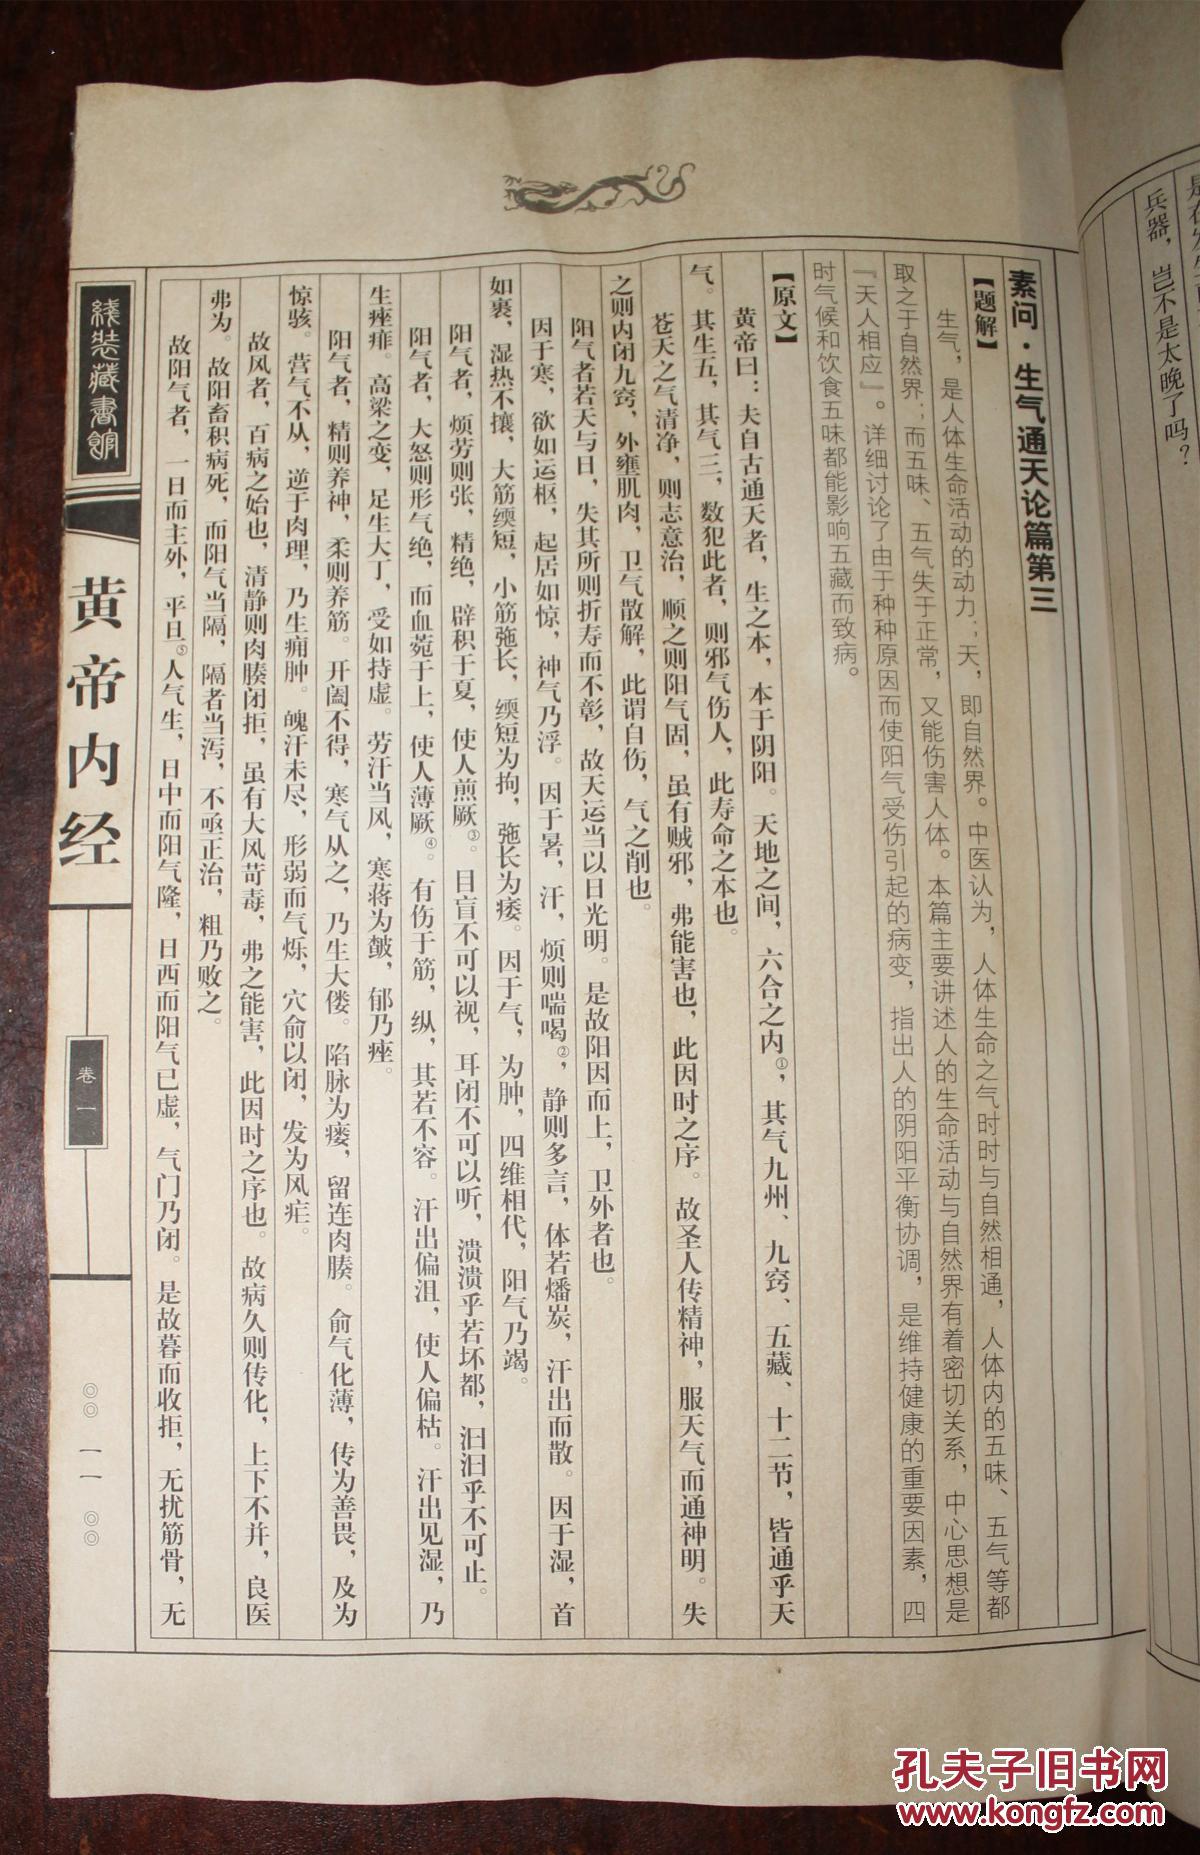 是在
兵器，岂不是太晚了吗？
素问·生气通天论篇第三
【题解】
生气，是人体生命活动的动力；天，即自然界。中医认为，人体生命之气时时与自然相通，人体内的五味、五气等都
取之于自然界；而五味、五气失于正常，又能伤害人体。本篇主要讲述人的生命活动与自然界有着密切关系，中心思想是
『天人相应』。详细讨论了由于种种原因而使阳气受伤引起的病变，指出人的阴阳平衡协调，是维持健康的重要因素，四
时气候和饮食五味都能影响五藏而致病。
【原文】
黄帝曰：夫自古通天者，生之本，本于阴阳。天地之间，六合之内①，其气九州、九窍、五藏、十二节，皆通乎天
气。其生五，其气三，数犯此者，则邪气伤人，此寿命之本也。
苍天之气清净，则志意治，顺之则阳气固，虽有贼邪，弗能害也，此因时之序。故圣人传精神，服天气而通神明。失
之则内闭九窍，外壅肌肉，卫气散解，此谓自伤，气之削也。
阳气者若天与日，失其所则折寿而不彰，故天运当以日光明。是故阳因而上，卫外者也。
因于寒，欲如运枢，起居如惊，神气乃浮。因于暑，汗，烦则喘喝②，静则多言，体若燔炭，汗出而散。因于湿，首
如裹，湿热不攘，大筋緛短，小筋弛长，緛短为拘，弛长为痿。因于气，为肿，四维相代，阳气乃竭。
阳气者，烦劳则张，精绝，辟积于夏，使人煎厥③。目盲不可以视，耳闭不可以听，溃溃乎若坏都，汩汩乎不可止。
阳气者，大怒则形气绝，而血菀于上，使人薄厥④。有伤于筋，纵，其若不容。汗出偏沮，使人偏枯。汗出见湿，乃
生痤痱。高梁之变，足生大丁，受如持虚。劳汗当风，寒薄为皶，郁乃痤。
阳气者，精则养神，柔则养筋。开阖不得，寒气从之，乃生大偻。陷脉为瘘，留连肉腠。俞气化薄，传为善畏，及为
惊骇。营气不从，逆于肉理，乃生痈肿。魄汗未尽，形弱而气烁，穴俞以闭，发为风疟。
故风者，百病之始也，清静则肉腠闭拒，虽有大风苛毒，弗之能害，此因时之序也。故病久则传化，上下不并，良医
弗为。故阳畜积病死，而阳气当隔，隔者当泻，不亟正治，粗乃败之。
故阳气者，一日而主外，平旦⑤人气生，日中而阳气隆，日西而阳气已虚，气门乃闭。是故暮而收拒，无扰筋骨，无
线装藏书馆
黄帝内经
卷一
◎◎一一◎◎
孔夫子旧书网
www.kongfz.com